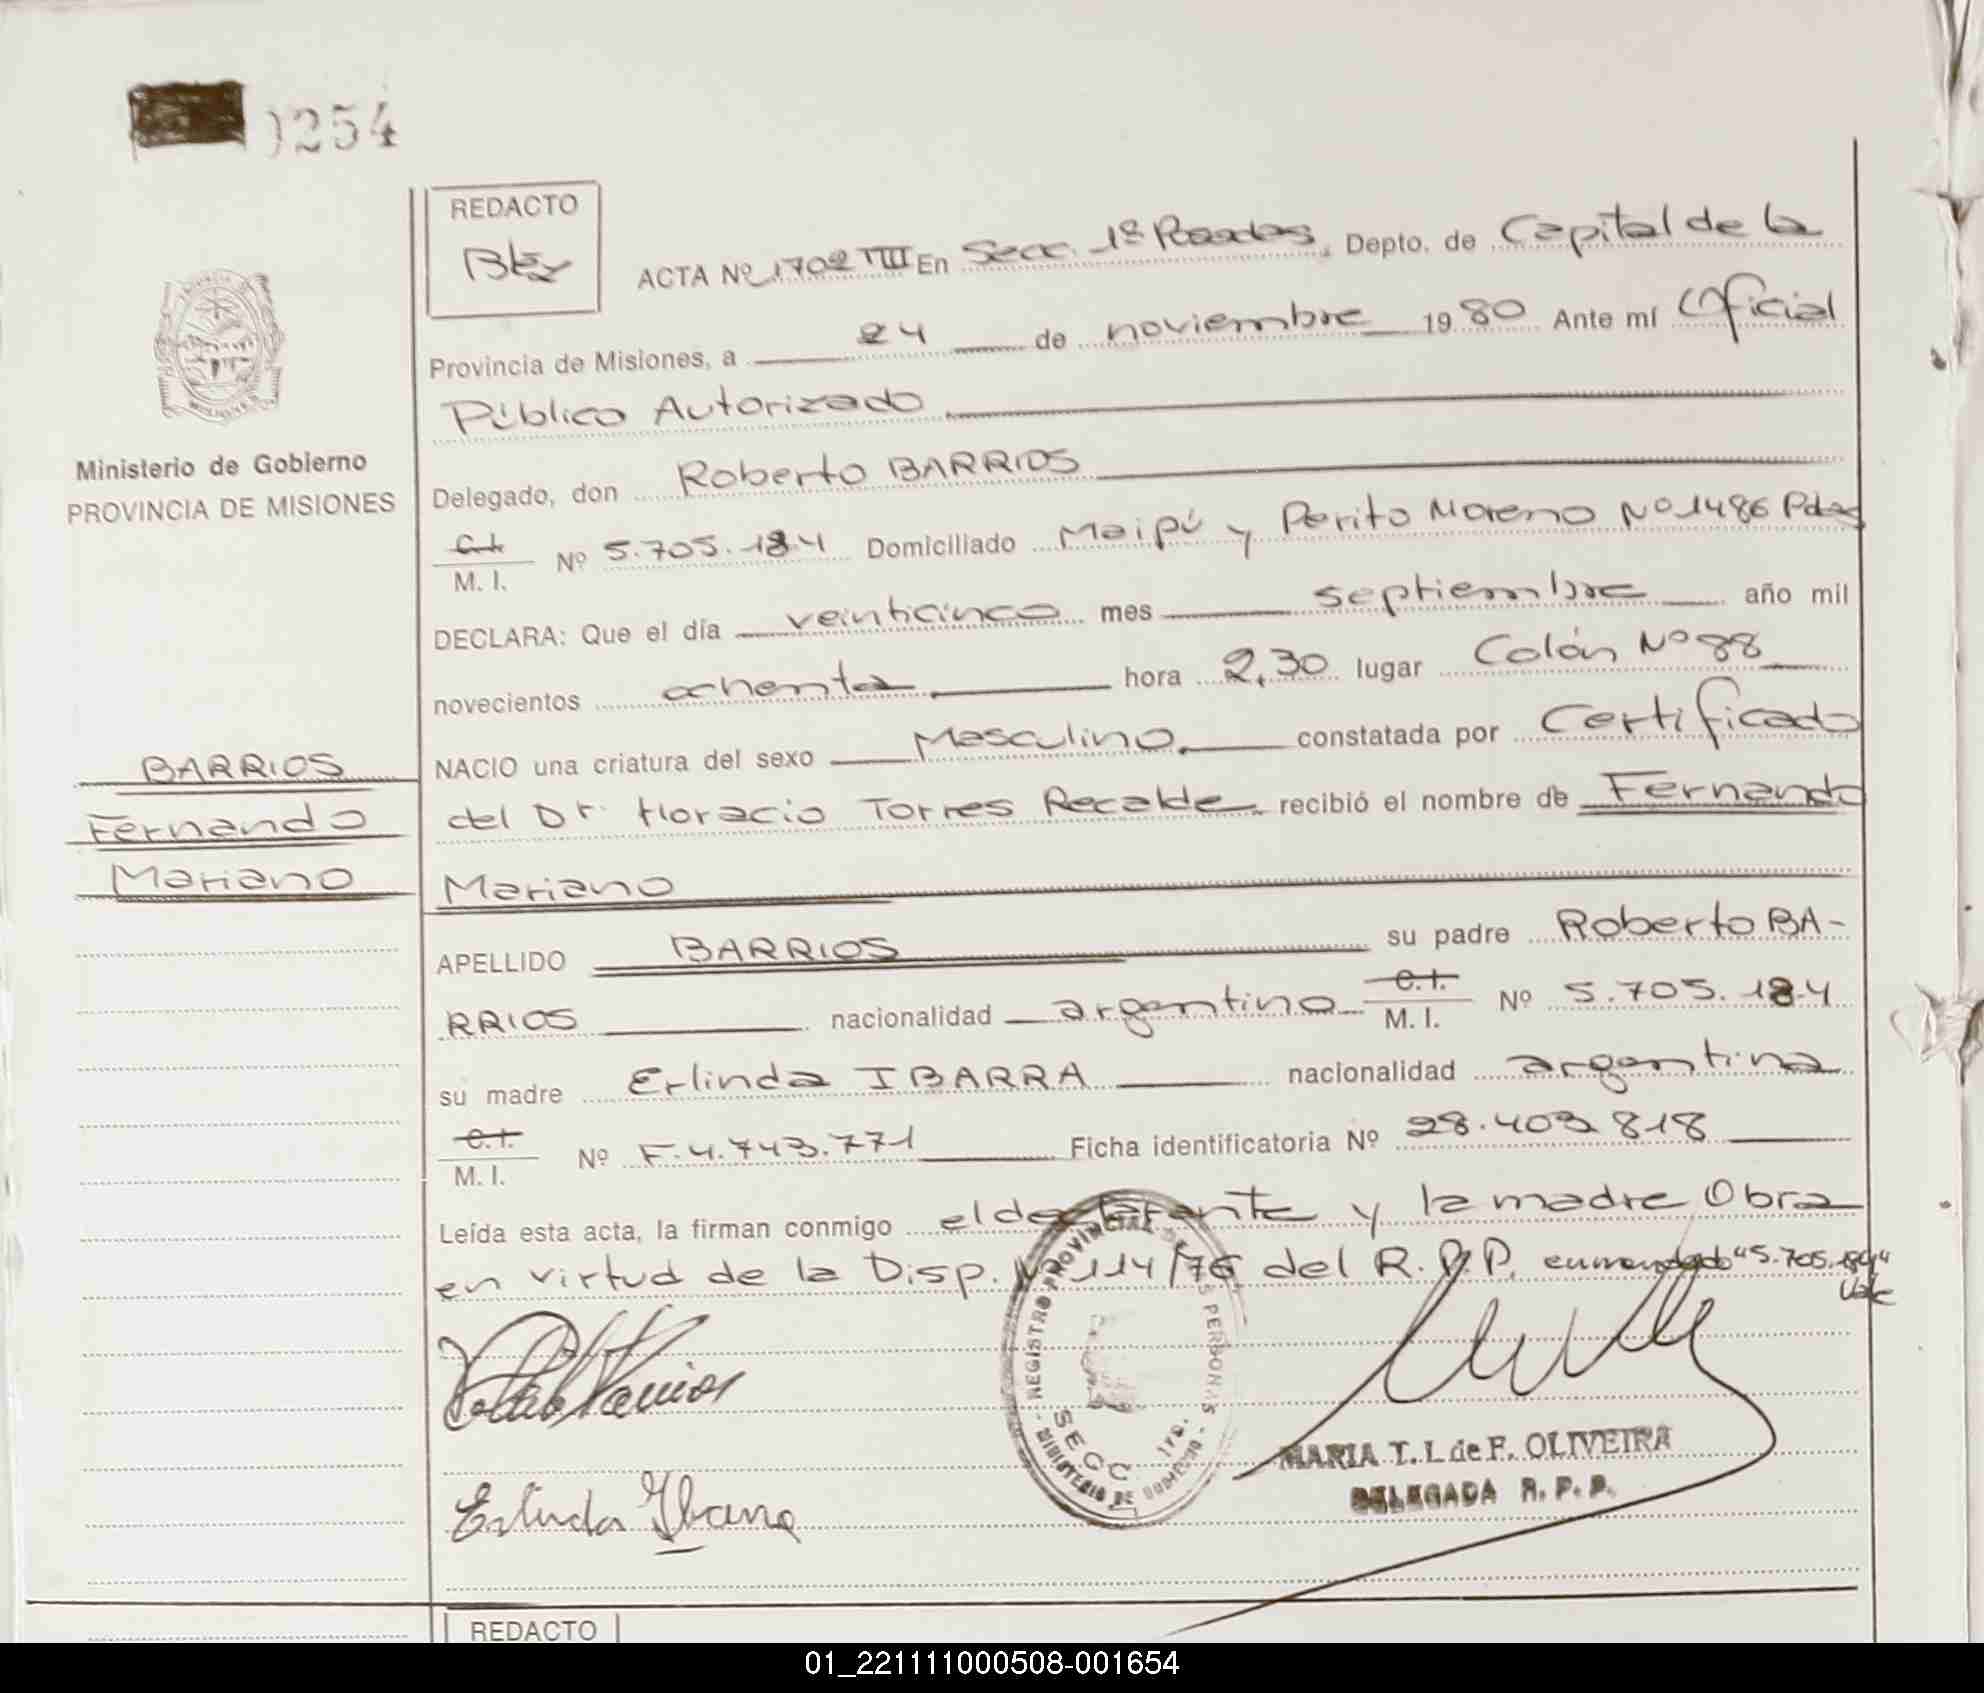 254
REDACTO
ACTA Nº 1702 TIII En Secc. 1ª Posadas, Depto. de Capital de la
Provincia de Misiones, a 24 de noviembre 19 80 Ante mí Oficial
Público Autorizado
Ministerio de Gobierno
PROVINCIA DE MISIONES
Delegado, don Roberto BARRIOS
C.I.
M. I. Nº 5.705.184 Domiciliado Maipú y Perito Moreno Nº 1486 Pdas
DECLARA: Que el día veinticinco mes septiembre año mil
novecientos ochenta hora 2,30 lugar Colón Nº 88
NACIO una criatura del sexo Masculino. constatada por Certificado
del Dr. Horacio Torres Recalde recibió el nombre de Fernando
Mariano
BARRIOS
Fernando
Mariano
APELLIDO BARRIOS su padre Roberto BA-
RRIOS nacionalidad argentino C.I.
M. I. Nº 5.705.184
su madre Erlinda IBARRA nacionalidad argentina
C.I.
M. I. Nº F.4.743.771 Ficha identificatoria Nº 28.403.818
Leída esta acta, la firman conmigo el declarante y la madre Obra
en virtud de la Disp. Nº 114/76 del R.P.P. enmendado "5.705.184"
Vale
REGISTRO PROVINCIAL DE PERSONAS
SECC. 1ra.
MINISTERIO DE GOBIERNO
Erlinda Ibarra
MARIA T. I. de F. OLIVEIRA
DELEGADA R. P. P.
REDACTO
01_221111000508-001654